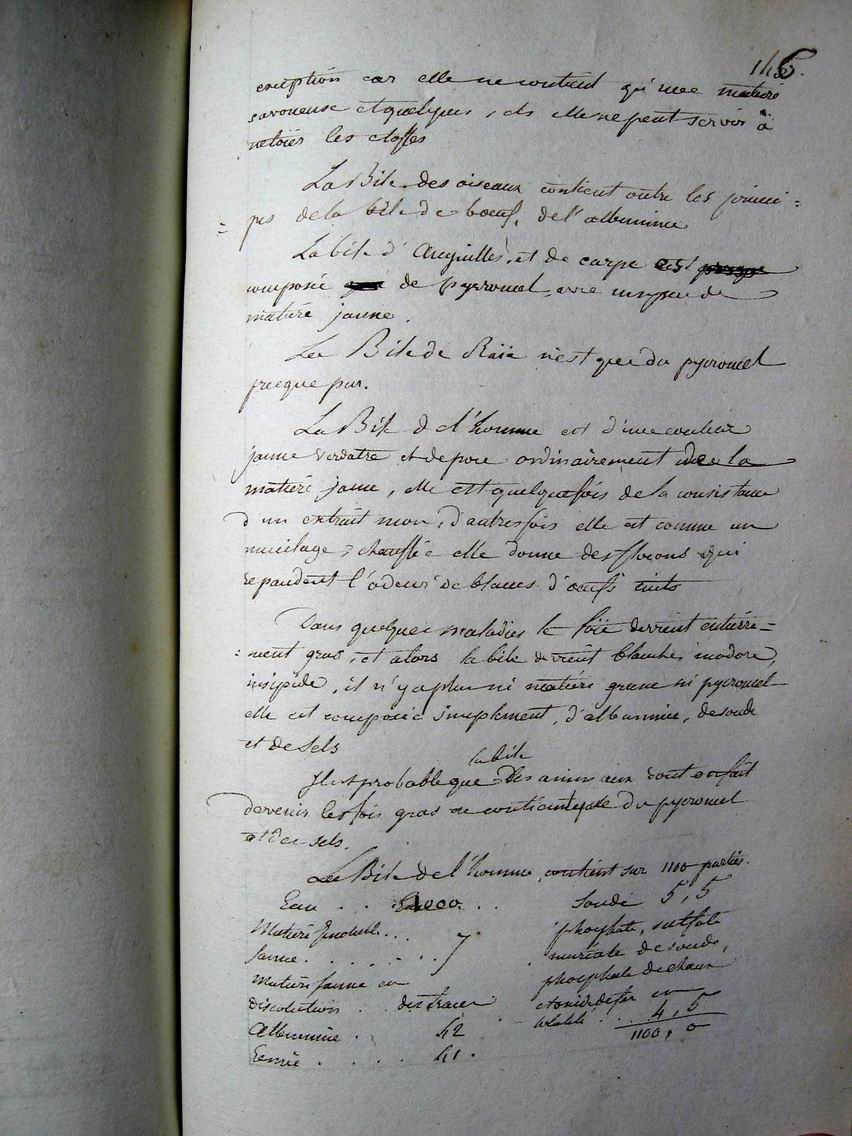 146.
exception car elle ne contient qu'une matiere
savoneuse et quelques sels elle ne peut servir à
netoiés les etoffes
La Bile des oiseaux contient outre les princi =
= pes de la bile de boeuf, de l'albumine
La bile d'Anguilles, et de carpe est
composée de pycromel, avec un peu de
matiere jaune.
La Bile de Raïe n'est que du pycromel
presque pur.
La Bile de l'homme est d'une couleur
jaune verdatre et depose ordinairement de la
matiere jaune, elle est quelquefois de la consistance
d'un extrait mou, d'autres fois elle est comme un
mucilage, chauffée elle donne des flocons qui
repandent l'odeur de blancs d'oeufs cuits
Dans quelques maladies le foie devient entiére =
= ment gras, et alors la bile devient blanche, inodore,
insipide, il n'y a plus ni matiere grasse ni pycromel
elle est composée simplement, d'albumine, de soude
et de sels
Il est probable que la bile des animaux dont on fait
devenir les fois gras ne contient que du pycromel
et des sels.
La Bile de l'homme contient sur 1100 parties.
Eau . . . 1000. . .
Matiere
jaune . . . . . . 7
Matiere jaune en
dissolution . . des traces
Albumine . 42
Resine . . . . 41.
soude 5,5
phosphate, sulfate
muriate de soude,
phosphate de chaux
et oxide de fer
. . . 4,5
1100,0